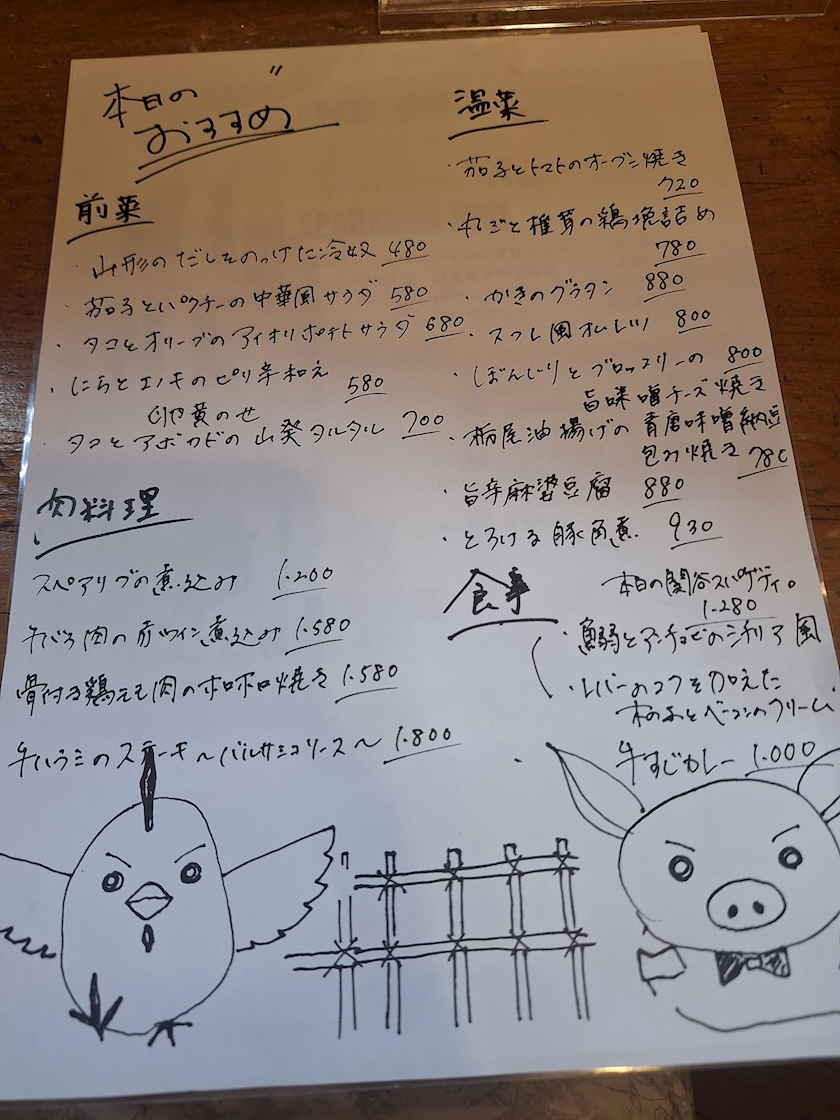 本日の
おすすめ
前菜
・山形のだしをのっけた冷奴 480
・茄子とパクチーの中華風サラダ 580
・タコとオリーブのアイオリポテトサラダ 680
・にらとエノキのピリ辛和え 580
卵黄のせ
・タコとアボカドの山葵タルタル 700
肉料理
スペアリブの煮込み 1.200
牛バラ肉の赤ワイン煮込み 1.580
骨付き鶏もも肉のホロホロ焼き 1.580
牛ハラミのステーキ～バルサミコソース～ 1.800
温菜
・茄子とトマトのオーブン焼き
720
・丸ごと椎茸の鶏挽詰め
780
・かきのグラタン 880
・スフレ風オムレツ 800
・ぼんじりとブロッコリーの 800
旨味噌チーズ焼き
・栃尾油揚げの青唐味噌納豆
包み焼き 780
・旨辛麻婆豆腐 880
・とろける豚角煮 930
食事
本日の関谷スパゲティ。
1.280
・鰯とアンチョビのシチリア風
・レバーのコクを加えた
木の子とベーコンのクリーム
・牛すじカレー 1.000